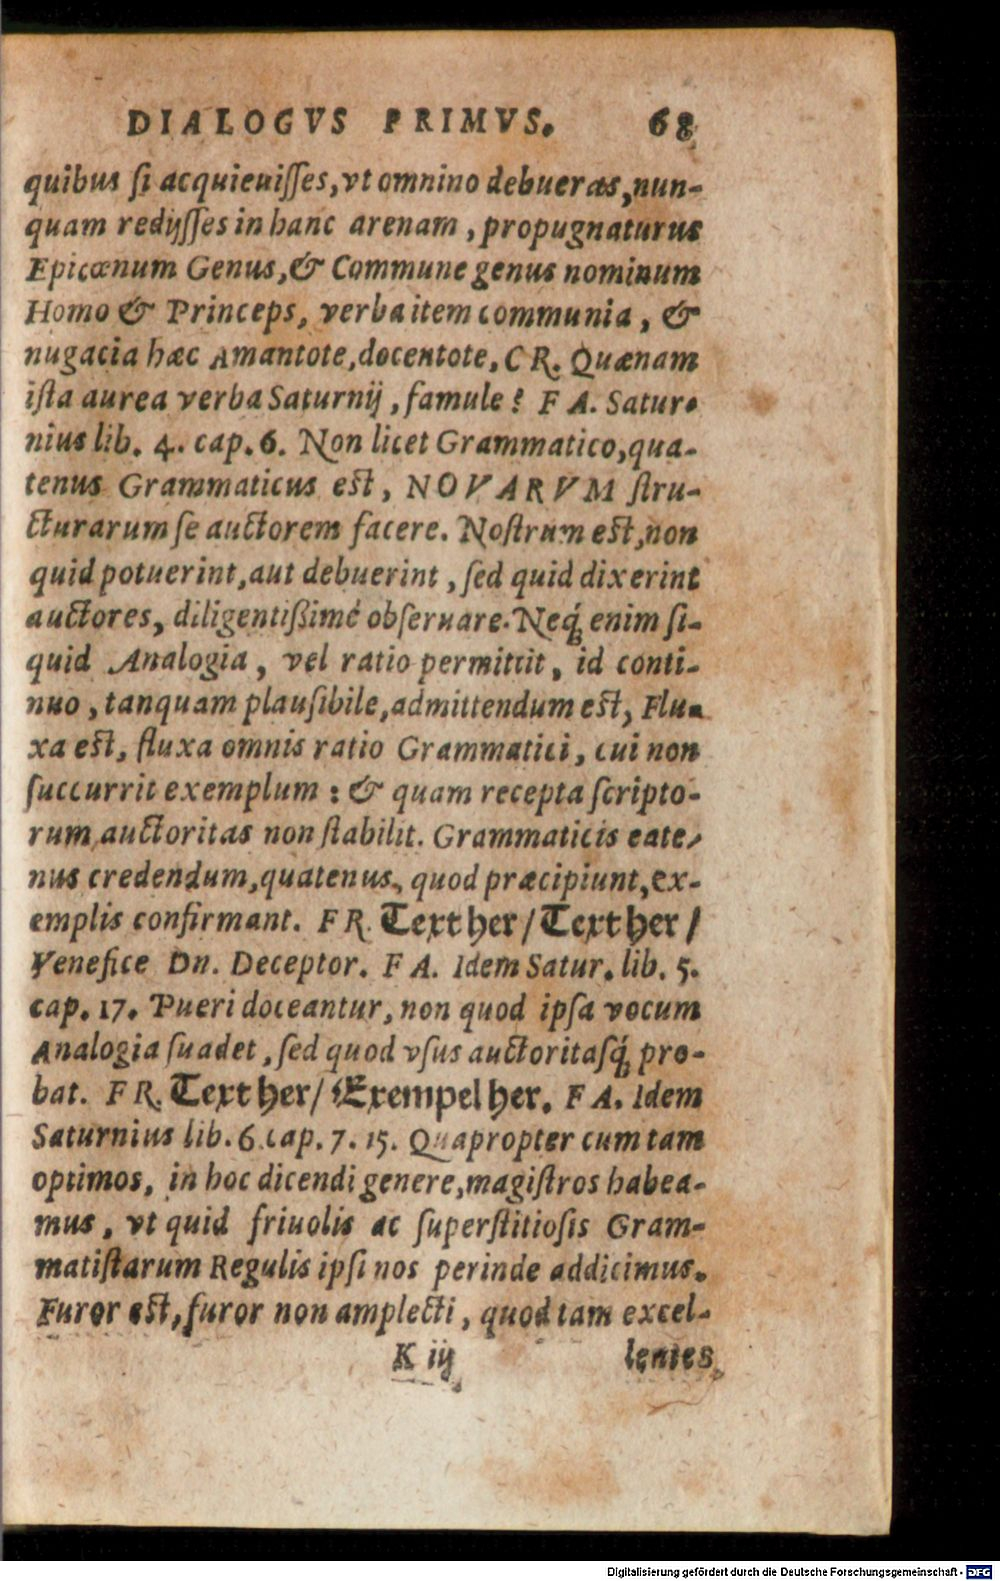 DIALOGVS PRIMVS. 68
quibus ſi acquieuiſſes, vt omnino debueras, nun-
quam redijſſes in hanc arenam, propugnaturus
Epicœnum Genus, & Commune genus nominum
Homo & Princeps, verba item communia, &
nugacia hæc Amantote, docentote, CR. Quænam
iſta aurea verba Saturnij, famule? FA. Satur-
nius lib. 4. cap. 6. Non licet Grammatico, qua-
tenus Grammaticus eſt, NOVARVM ſtru-
cturarum ſe auctorem facere. Noſtrum eſt, non
quid potuerint, aut debuerint, ſed quid dixerint
auctores, diligentißimé obſeruare. Neq́; enim ſi-
quid Analogia, vel ratio permittit, id conti-
nuo, tanquam plauſibile, admittendum eſt, Flu-
xa eſt, fluxa omnis ratio Grammatici, cui non
ſuccurrit exemplum: & quam recepta ſcripto-
rum auctoritas non ſtabilit. Grammaticis eate-
nus credendum, quatenus, quod præcipiunt, ex-
emplis confirmant. FR. Text her/ Text her/
Venefice Dn. Deceptor. FA. Idem Satur. lib. 5.
cap. 17. Pueri doceantur, non quod ipſa vocum
Analogia ſuadet, ſed quod vſus auctoritaſq́; pro-
bat. FR. Text her/ Exempel her. FA. Idem
Saturnius lib. 6 cap. 7. 15. Quapropter cum tam
optimos, in hoc dicendi genere, magiſtros habea-
mus, vt quid friuolis ac ſuperſtitioſis Gram-
matiſtarum Regulis ipſi nos perinde addicimus.
Furor eſt, furor non amplecti, quod tam excel-
K iij lentes
Digitalisierung gefördert durch die Deutsche Forschungsgemeinschaft - DFG